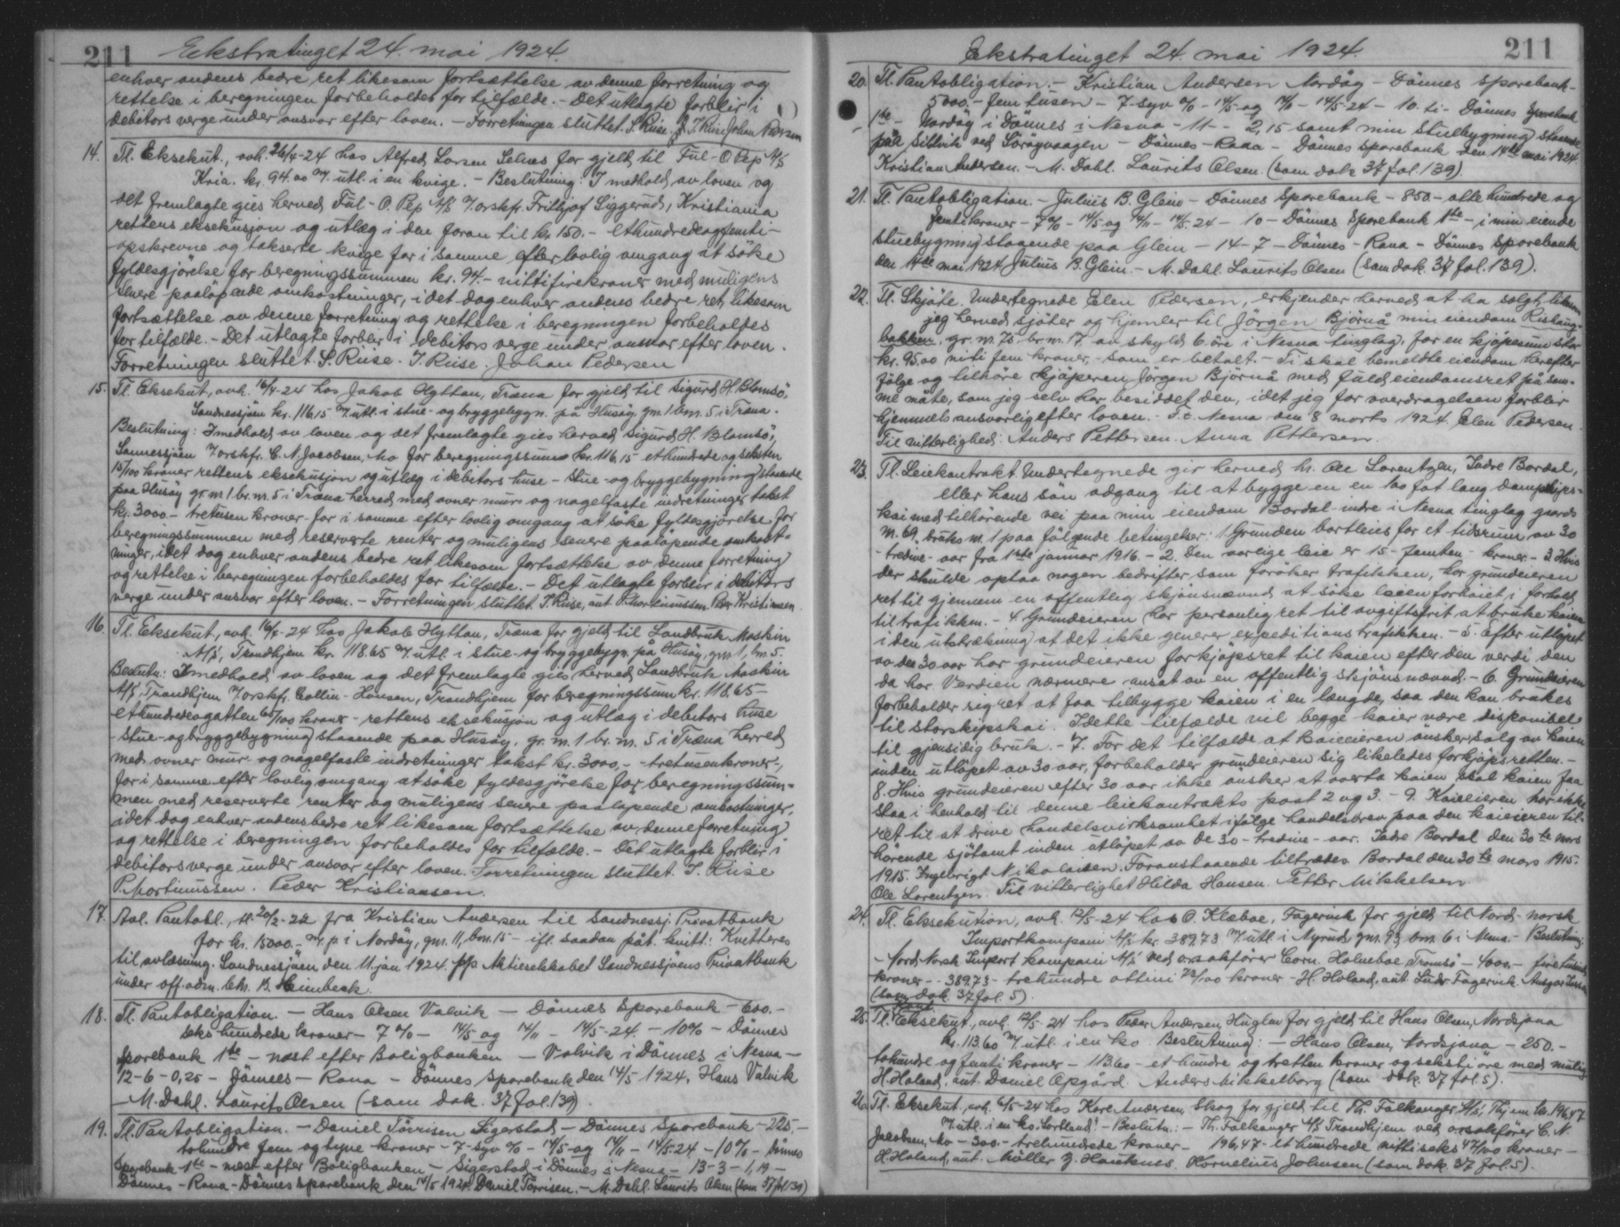 211 Ekstratinget 24. mai 1924.
enhver andens bedre ret likesom fortsættelse av denne forretning og
rettelse i beregningen forbeholdes for tilfælde. - Det utlagte forblir i
debitors verge under ansvar efter loven. - Forretningen sluttet. S. Riise. J. Riise Johan Pedersen
14. Tl. Eksekut., avh. 26/4-24 hos Alfred Lorsen Selnes for gjeld til Ful-O Pep A/S
Kria. kr. 94.00 m. utl. i en kvige. - Beslutning: I medhold av loven og
det fremlagte gies herved Ful-O. Pep A/S v. orskfr. Fritjof Siggerud, Kristiania
rettens eksekusjon og utlæg i den foran til kr. 150.- ethundredeogfemti-
opskrevne og takserte kvige for i samme efter lovlig omgang at söke
fyldesgjörelse for beregningssummen kr. 94.- nittifirekroner med muligens
senere paalöpende omkostninger, idet dog enhver andens bedre ret likesom
fortsættelse av denne forretning og rettelse i beregningen forbeholdes
for tilfælde. - Det utlagte forblir i debitors verge under ansvar efter loven.
Forretningen sluttet. S. Riise. J. Riise. Johan Pedersen
15. Tl. Eksekut, avh. 16/5-24 hos Jakob Hyttan, Træna for gjeld til Sigurd H. Blomsö,
Sandnessjöen kr. 116,15 m. utl. i stue- og bryggebygn. på Husöy, gm. 1. bm. 5. i Træna.
Beslutning: I medhold av loven og det fremlagte gies herved Sigurd H. Blomsö,
Sannessjöen v. orskfr. C. N. Jacobsen, Mo for beregningssum kr. 116,15 ethundrede og seksten
15/100 kroner rettens eksekusjon og utlæg i debitors huse - stue- og bryggebygning staaende
paa Husöy gr. m. 1. br. m. 5 i Træna herred med ovner mur- og nagelfaste indretninger, takst
kr. 3000.- tretusen kroner for i samme efter lovlig omgang at söke fyldesgjörelse for
beregningssummen med reserverte renter og muligens senere paalöpende omkost-
ninger, idet dog enhver andens bedre ret likesom fortsættelse av denne forretning
og rettelse i beregningen forbeholdes for tilfælde. - Det utlagte forblir i debitors
verge under ansvar efter loven. - Forretningen sluttet. S. Riise, aut. P. Mortinussen Peder Kristiansen
16. Tl. Eksekut, avh. 16/5-24 hos Jakob Hyttan, Træna for gjeld til Landbruk Maskin
A/S, Trondhjem kr. 118.65 m. utl. i stue- og bryggebygn. på Husöy, gm. 1, bm. 5.
Beslutn: I medhold av loven og det fremlagte gies herved Landbruks Maskin
A/S, Trondhjem v. orskfr. Collin-Hansen, Trondhjem for beregningssum kr. 118,65 -
ethundredeogatten 65/100 kroner - rettens eksekusjon og utlæg i debitors huse
- stue- og bryggebygning staaende paa Husöy, gr. m. 1 br. m. 5 i Træna herred
med ovner mur- og nagelfaste indretninger takst kr. 3000,- - tretusenkroner -,
for i samme efter lovlig omgang at söke fyldesgjörelse for beregningssum-
men med reserverte renter og muligens senere paalöpende omkostninger,
idet dog enhver andens bedre ret likesom fortsættelse av denne forretning
og rettelse i beregningen forbeholdes for tilfælde. - Det utlagte forblir i
debitors verge under ansvar efter loven. Forretningen sluttet. S. Riise
P. Mortinussen. Peder Kristiansen.
17. Avl. Pantobl., tl. 20/2-22 fra Kristian Andersen til Sandnessj. Privatbank
for kr. 15000.- m. p. i Nordöy, gm. 11, bm. 15 - ifl. saadan påt. kvitt: Kvitteres
til avlæsning. Sandnessjöen den 11. jan 1924. p/p Aktieselskabet Sandnessjöens Privatbank
under off. adm. Chr. B. Hennbeck.
18. Tl. Pantobligation. - Hans Olsen Valvik - Dönnes Sparebank - 600.-
seks-hundrede kroner - 7 % - 14/5 og 14/11 - 14/5-24 - 10% - Dönnes
Sparebank 1ste - næst efter Boligbanken - Valvik i Dönnes i Nesna -
12-6-0,25 - Dönnes - Rana - Dönnes Sparebank den 14/5 1924. Hans Valvik
- M. Dahl. Laurits Olsen (som dok. 37 fol. 139).
19. Tl. Pantobligation. - Daniel Tönisen Sigerstad - Dönnes Sparebank - 225.-
tohundre fem og tyve kroner - 7-syv % - 14/5-og 14/11 - 14/5-24 - 10% - Dönnes
Sparebank 1ste - næst efter Boligbanken - Sigerstad i Dönnes i Nesna - 13-3-1,19 -
Dönnes - Rana - Dönnes Sparebank den 14/5 1924. Daniel Tönisen. - M. Dahl. Laurits Olsen (som 37 fol. 139)
Ekstratinget 24. mai 1924. 211
20. Tl. Pantobligation. - Kristian Andersen Nordöy - Dönnes Sparebank -
5000.- fem tusen - 7-syv % - 14/5-og 14/11 - 14/5-24 - 10. ti - Dönnes Sparebank
1ste - Nordöy i Dönnes i Nesna - 11 - 2,15 samt min stuebygning staaende
på Siltvik ved Töröyvaagen - Dönnes - Rana - Dönnes Sparebank den 14de mai 1924
Kristian Andersen. - M. Dahl. Laurits Olsen. (som dok 37 fol. 139)
21. Tl. Pantobligation - Julius B. Glein - Dönnes Sparebank - 850 - otte hundrede og
femti kroner - 7 % - 14/5-og 14/11 - 14/5.24 - 10 - Dönnes Sparebank 1ste - i min eiende
stuebygning staaende paa Glein - 14 - 7 - Dönnes - Rana - Dönnes Sparebank
den 14de mai 1924 Julius B. Glein. - M. Dahl. Laurits Olsen (som dok. 37 fol. 139).
22. Tl. Skjöte. Undertegnede Elen Pedersen, erkjender herved at ha solgt, likesom
jeg herved sjöter og hjemler til Jörgen Björnå min eiendom Rislaug-
bakken, gr. m. 75 br. m. 17 av skyld 6 öre i Nesna tinglag, for en kjöpesum stor
kr. 95.00 nitti fem kroner, som er betalt. - Ti skal bemeldte eiendom herefter
fölge og tilhöre kjöperen Jörgen Björnå med fuld eiendomsret på sam-
me måte, som jeg selv har besiddet den, idet jeg for overdragelsen forblir
hjemmels ansvarlig efter loven. - S. t. Nesna den 8 marts 1924 Elen Pedersen.
Til vitterlighed: Anders Pettersen. Anna Pettersen.
23. Tl. Leiekontrakt Undertegnede gir herved hr. Ole Lorentzen, Indre Bardal,
eller hans sön adgang til at bygge en en 100 fot lang dampskips-
kai med tilhörende vei paa min eiendom Bardal indre i Nesna tinglag gaards
m. 69, bruks m. 1 paa fölgende betingelser: 1. Grunden bortleies for et tidsrum av 30
- tredive - aar fra 1ste januar 1916. - 2. Den aarlige leie er 15 - femten - kroner - 3 Hvis
der skulde optaa nogen bedrifter som foröker trafikken, har grundeieren
ret til gjennem en offentlig skjönsnævnd at söke leien forhöiet i forhold
til trafikken. - 4. Grundeieren har personlig ret til avgiftsfrit at bruke kaien
i den utstrækning at det ikke generer expeditions trafikken. - 5. Efter utlöpet
av de 30 aar har grundeieren forkjöpsret til kaien efter den verdi den
da har. Verdien nærmere ansat av en offentlig skjönsnævnd. - 6. Grundeieren
forbeholder sig ret at faa tilbygge kaien i en længde, saa den kan brukes
til storskipskai. I dette tilfælde vil begge kaier være disponibel
til gjensidig bruk. - 7. For det tilfælde at kaieieren önsker salg av kaien
inden utlöpet av 30 aar, forbeholder grundeieren sig likeledes forkjöpsretten. -
8. Hvis grundeieren efter 30 aar ikke önsker at overta kaien skal kaien faa
staa i henhold til denne leiekontrakts post 2 og 3. - 9. Kaieieren har ikke
ret til at drive handelsvirksomhet ifölge handelsbrev paa den kaieieren til-
hörende sjötomt inden utlöpet av de 30 - tredive - aar. Indre Bardal den 30te mars
1915. Ingebrigt Nikolaisen. Foranstaaende tiltrædes Bardal den 30te mars 1915.
Ole Lorentzen. Til vitterlighet Hilda Hansen. Petter Mikkelsen.
24. Tl. Eksekution, avh. 12/5-24 hos O. Klæboe, Fagervik for gjeld til Nord-norsk
Importkompani A/S kr. 389,73 m. utl. i Nyrud, gm. 93, bm. 6 i - Beslutning:
- Nord Norsk Import kompani A/S ved orsakförer Tromsö - 4000.- firetusind
kroner - 389,73 - trehundre ottini 73/100 kroner - H. Holand, aut. Fagervik.
(som dok. 37 fol. 5).
25. Tl. Eksekut., avh. 12/5-24 hos Peder Andersen, Huglen for gjeld til Hans Olsen, Nordsjona
kr. 113,60 m. utl. i en ko. Beslutning: - Hans Olsen, Nordsjona - 250.-
tohundre og femti kroner - 113,60 - et hundre og tretten kroner og seksti öre med mulig
H. Holand, aut. Daniel Opgård. Anders Mikkelborg (som dok. 37 fol. 5).
26. Tl. Eksekut, avh. 6/5-24 hos Kore Andersen, Skog for gjeld til Th. Falkanger A/S, Thjem kr. 196,47
m. utl. i en ko. - Beslutn: - Th. Falkanger A/S Trondhjem ved orsakförer C. N.
Jacobsen, Mo - 300.- trehundrede kroner - 196,47 - et hundrede nittiseks 47/100 kroner -
H. Holand, aut. Möller J. Hauknes, Kornelius Johnsen (som dok. 37 fol. 5).